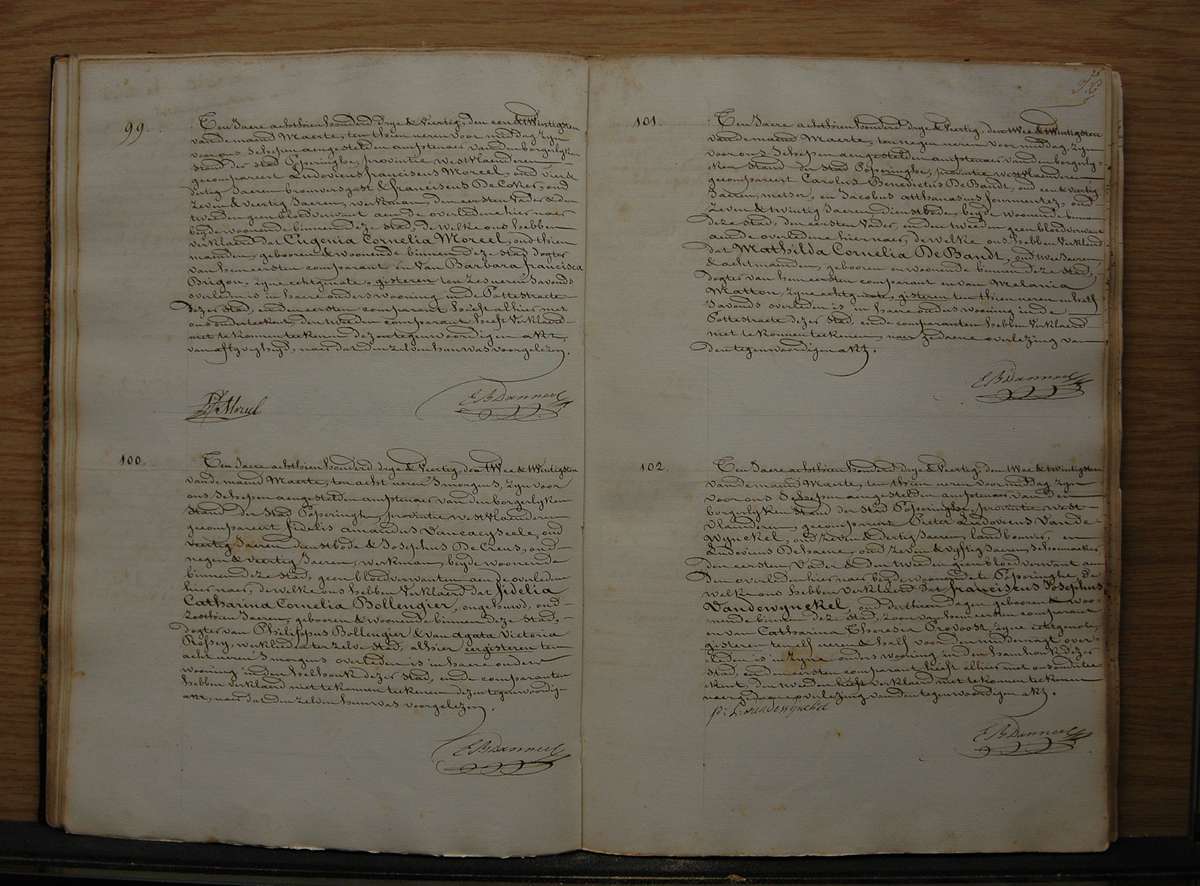 99.
Ten Jaere achthonderd drye & Viertig, den een & twintigsten
van de maand Maerte, ten thien uren voor middag zyn
voor ons Schepen aengestelden amptenaer van den borgerlyken
stand der stad Poperinghe, provintie westVlaenderen
gecompareert Ludovicus franciscus Moreel, oud vier &
Jaeren brouwersgast & franciscus DeCoker, oud
zeven & viertig Jaeren, werkman, den eersten Vader & den
tweeden geen bloedverwant aen de overledene hier naer
beyde woonende binnen deze stad, de welke ons hebben
verklaerd dat Eugenia Cornelia Moreel, oud thien
maenden, gebooren & woonende binnen deze stad dogter
van hem eersten comparant en van Barbara francisca
Drigon, zyne echtgenote, gisteren ten zes uren s'avonds
overleden is in haere ouders wooning in de Pottestraete
dezer stad, ende eersten comparant heeft alhier met
ons onderteekent, den tweeden comparant heeft verklaerd
niet te konnen teekenen deze tegenwoordigen akt,
van afgevolgd, naer dat den zelven hun was voorgelezen.
Moreel
E.B. Danneel
100.
Ten Jaere achthonderd drye & viertig, den twee & twintigsten
van de maand Maerte, ten acht uren s'morgens, zyn voor
ons schepen aengestelden amptenaer van den borgerlyken
stand der stad Poperinghe, provintie westvlaenderen
gecompareert fidelis amandus Vancayseele, oud
veertig Jaeren dienstbode & Josephus De Creus, oud
negen & veertig Jaeren, werkman, beyde woonende
binnen deze stad, geen bloedverwanten aen de overledene
hier naer, de welke ons hebben verklaerd dat fidelia
Catharina Cornelia Bollengier, ongehuwd, oud
zesthien Jaeren, gebooren & woonende binnen deze stad,
dogter van Philippus Bollengier & van agata Victoria
Rossey, werklieden ter zelve stad, alhier eergisteren ten
acht uren s'morgens overleden is in haere ouders
wooning in den hellhoek dezer stad, ende comparanten
hebben verklaerd niet te konnen teekenen deze tegenwoordig
akt, naer dat den zelven hun was voorgelezen.
E.B. Danneel
101.
Ten Jaere achthonderd drye & viertig, den twee & twintigsten
van de maand Maerte, ten negen uren voor middag, zyn
voor ons Schepen aengestelden amptenaer van den borgerly-
ken stand der stad Poperinghe, provintie westvlaenderen
gecompareert Carolus Benedictus DeBandt, oud een & veertig
Jaeren, metser, en Jacobus atthanasius Jonmeritz, oud
zeven & twintig Jaeren dienstbode, beyde woonende binnen
deze stad, den eersten Vader, ende tweeden geen bloedverwant
aen de overledene hier naer, de welke ons hebben verklaerd
dat Mathilda Cornelia De Bandt, oud twee Jaeren
& acht maenden, gebooren en woonende binnen deze stad,
dogter van hem eersten comparant en van Melania
Matton, zyne echtgenote, gisteren ten thien uren en half
s'avonds overleden is in haere ouders wooning in de
Pottestraete dezer stad, ende comparanten hebben verklaerd
niet te konnen teekenen, naer gedaene overlezing van
den tegenwoordigen akt.
E.B. Danneel
102.
Ten Jaere achthonderd drye & viertig, den twee & twintigsten
van de maand Maerte, ten thien uren voor middag zyn
voor ons Schepen aengestelden amptenaer van den
borgerlyken stand der stad Poperinghe, provintie west-
vlaenderen, gecompareert Pieter Ludovicus Vande-
wynckel, oud zeven & dertig Jaeren, landbouwer, en
Ludovicus Dehaene, oud zeven & vyftig Jaeren, Schoenmaeker,
den eersten Vader & den tweeden geen bloedverwant aen
den overleden hier naer beyde woonende te Poperinghe, de
welke ons hebben verklaerd dat franciscus Josephus
Vandewynckel, oud derthien dagen gebooren & woo-
nende binnen deze stad, zoon van hem eersten comparant
en van Catharina Theresia Provoost, zyne echtgenote,
gisteren ten elf uren & half voor middernagt over-
leden is in zyne ouders wooning in den hamhoek dezer
stad, ende eersten comparant heeft alhier met ons ondertee-
kent, den tweeden heeft verklaerd niet te konnen teekenen
naer gedaene overlezing van den tegenwoordigen akt.
p: L: vandewynckel
E.B. Danneel